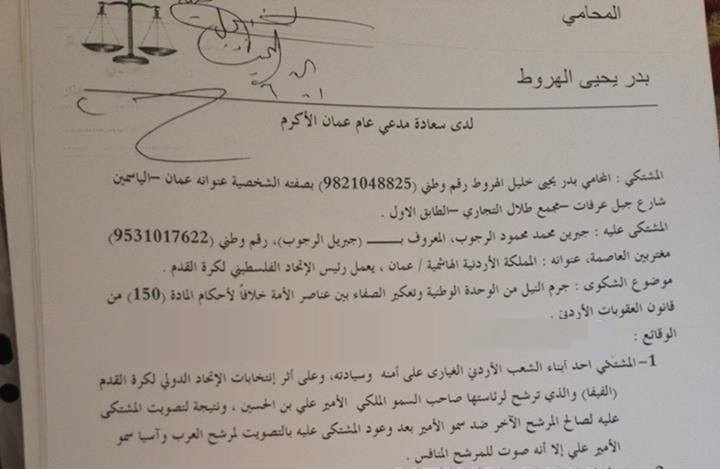 المحامي
بدر يحيى الهروط
لدى سعادة مدعي عام عمان الأكرم
المشتكي : المحامي بدر يحيى خليل الهروط رقم وطني (9821048825) بصفته الشخصية عنوانه عمان –الياسمين
شارع جبل عرفات –مجمع طلال التجاري –الطابق الاول .
المشتكى عليه : جبرين محمد محمود الرجوب، المعروف بـــــ (جبريل الرجوب)، رقم وطني (9531017622)
مغتربين العاصمة، عنوانه : المملكة الأردنية الهاشمية / عمان ، يعمل رئيس الإتحاد الفلسطيني لكرة القدم .
موضوع الشكوى : جرم النيل من الوحدة الوطنية وتعكير الصفاء بين عناصر الأمة خلافاً لأحكام المادة (150) من
قانون العقوبات الأردني .
الوقائع :
1– المشتكي احد أبناء الشعب الأردني الغيارى على أمنه وسيادته، وعلى أثر إنتخابات الإتحاد الدولي لكرة القدم
(الفيفا) والذي ترشح لرئاستها صاحب السمو الملكي الأمير علي بن الحسين ، ونتيجة لتصويت المشتكى
عليه لصالح المرشح الآخر ضد سمو الأمير بعد وعود المشتكى عليه بالتصويت لمرشح العرب وآسيا سمو
الأمير علي إلا أنه صوت للمرشح المنافس .